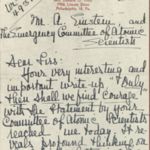 Philadelphia, Pa.
M. A. Einstein, and
The Emergency Committee of Atomic
Scientists
Dear Sirs:
Your very interesting and
important write-up. Truly,
then shall we find Courage
with the statement by your
Committee of Atomic Scientists
reached me today. It re-
veals profound thinking on